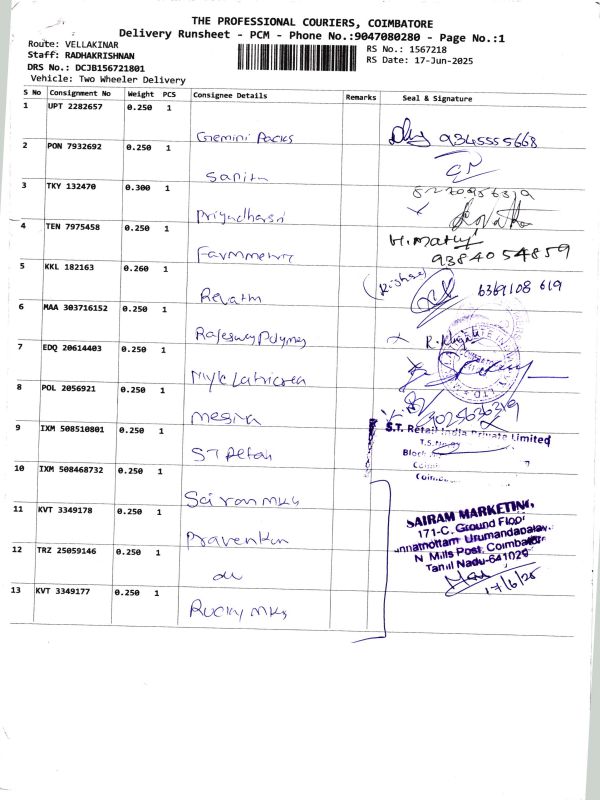 THE PROFESSIONAL COURIERS, COIMBATORE
Delivery Runsheet - PCM - Phone No.:9047080280 - Page No.:1
Route: VELLAKINAR
RS No.: 1567218
Staff: RADHAKRISHNAN
RS Date: 17-Jun-2025
DRS No.: DCJB156721801
Vehicle: Two Wheeler Delivery
S No Consignment No Weight PCS Consignee Details Remarks Seal & Signature
1 UPT 2282657 0.250 1
Gemini Packs 9345555668
2 PON 7932692 0.250 1
Sanitu
3 TKY 132470 0.300 1
Priyadharsri
4 TEN 7975458 0.250 1
H.mathy
9384054859
5 KKL 182163 0.260 1
Revathi 6369108 619
6 MAA 303716152 0.250 1
Rajeswary Polymers
7 EDQ 20614403 0.250 1
8 POL 2056921 0.250 1
9 IXM 508510801 0.250 1
S.T. Retail India Private Limited
T.S.No.
Block
10 IXM 508468732 0.250 1
Sairam Mkg
11 KVT 3349178 0.250 1
Pravenkum
SAIRAM MARKETING,
171-C, Ground Floor
Urumandapalay
N Mills Post, Coimbatore
Tamil Nadu-641029
12 TRZ 25059146 0.250 1
do
17/6/25
13 KVT 3349177 0.250 1
Rucky Mkg